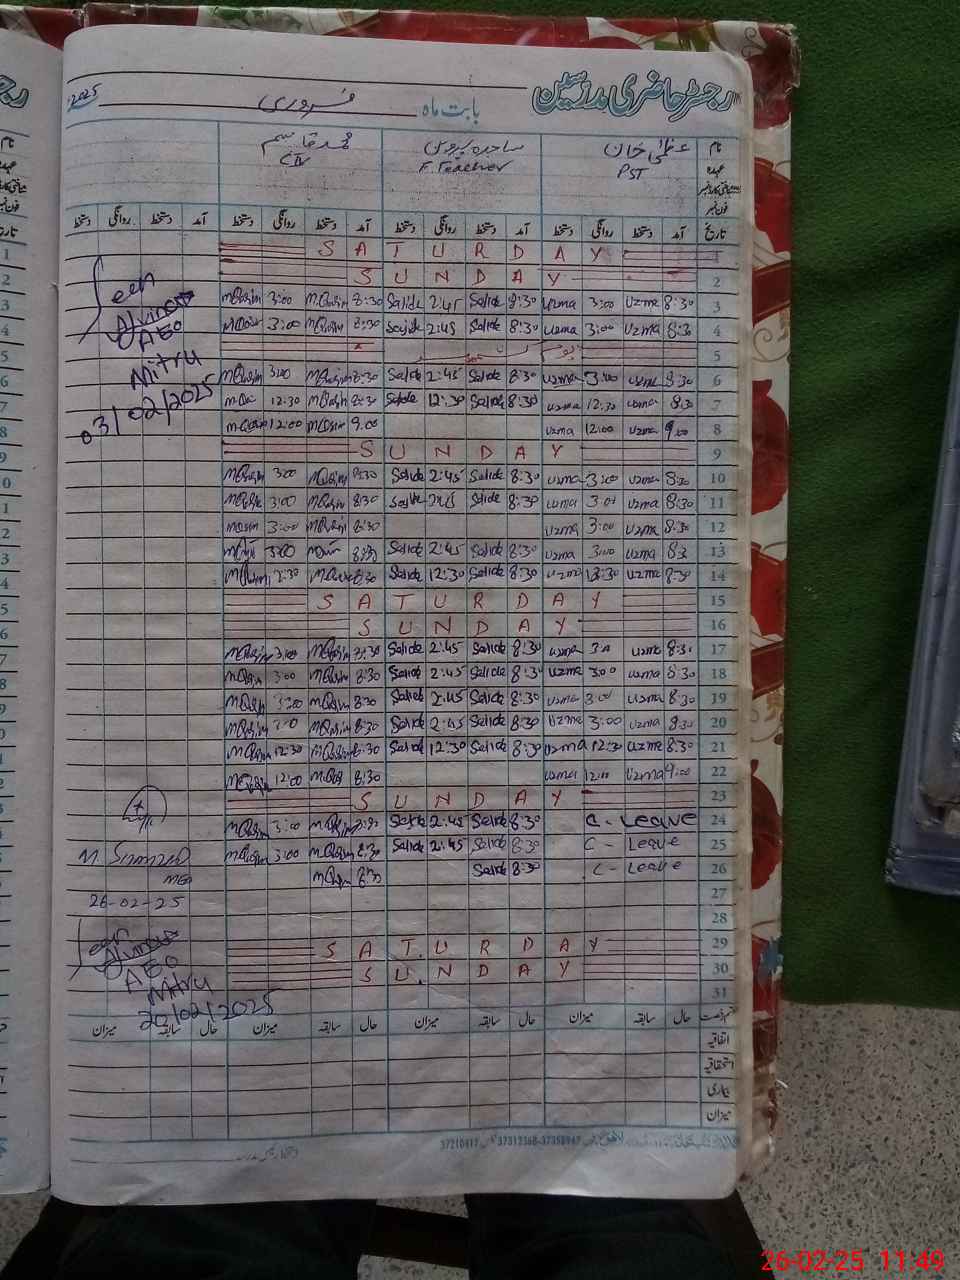 رجسٹر حاضری مدرسین
بابت ماہ فروری 2025
نام عظمیٰ خان ساجدہ پروین محمد قاسم
عہدہ PST F. Teacher CTV
فون نمبر
تاریخ آمد دستخط روانگی دستخط آمد دستخط روانگی دستخط آمد دستخط روانگی دستخط آمد دستخط روانگی دستخط
SATURDAY 1
SUNDAY 2
M Qasim 3:00 M Qasim 8:30 Sajida 2:45 Sajida 8:30 uzma 3:00 uzma 8:30 3
M Qasim 3:00 M Qasim 8:30 Sajida 2:45 Sajida 8:30 uzma 3:00 uzma 8:30 4
5
M Qasim 3:00 M Qasim 8:30 Sajida 2:45 Sajida 8:30 uzma 3:00 uzma 8:30 6
M Qasim 12:30 M Qasim 8:30 Sajida 12:30 Sajida 8:30 uzma 12:30 uzma 8:30 7
M Qasim 12:00 M Qasim 9:00 uzma 12:00 uzma 9:00 8
SUNDAY 9
M Qasim 3:00 M Qasim 8:30 Sajida 2:45 Sajida 8:30 uzma 3:00 uzma 8:30 10
M Qasim 3:00 M Qasim 8:30 Sajida Sajida 8:30 uzma 3:00 uzma 8:30 11
M Qasim 3:00 M Qasim 8:30 uzma 3:00 uzma 8:30 12
M Qasim 3:00 M Qasim 8:30 Sajida 2:45 Sajida 8:30 uzma 3:00 uzma 8:3 13
M Qasim 12:30 M Qasim 8:30 Sajida 12:30 Sajida 8:30 uzma 12:30 uzma 8:30 14
SATURDAY 15
SUNDAY 16
M Qasim 3:00 M Qasim 8:30 Sajida 2:45 Sajida 8:30 uzma 3:0 uzma 8:30 17
M Qasim 3:00 M Qasim 8:30 Sajida 2:45 Sajida 8:30 uzma 3:00 uzma 8:30 18
M Qasim 3:00 M Qasim 8:30 Sajida 2:45 Sajida 8:30 uzma 3:00 uzma 8:30 19
M Qasim 3:0 M Qasim 8:30 Sajida 2:45 Sajida 8:30 uzma 3:00 uzma 8:30 20
M Qasim 12:30 M Qasim 8:30 Sajida 12:30 Sajida 8:30 uzma 12:30 uzma 8:30 21
M Qasim 12:00 M Qasim 8:30 uzma 12:00 uzma 9:00 22
SUNDAY 23
M Qasim 3:00 M Qasim 8:30 Sajida 2:45 Sajida 8:30 C - Leave 24
M Qasim 3:00 M Qasim 8:30 Sajida 2:45 Sajida 8:30 C - Leave 25
M Qasim 8:30 Sajida 8:30 C - Leave 26
27
28
SATURDAY 29
SUNDAY 30
31
حال سابقہ میزان حال سابقہ میزان حال سابقہ میزان حال سابقہ میزان
اتفاقیہ
استحقاقیہ
بیماری
میزان
37210417 37312368-37358947
Seen
AEO
Mitru
03/02/2025
26-02-25
Seen
AEO
Mitru
20/02/2025
26-02-25 11:49